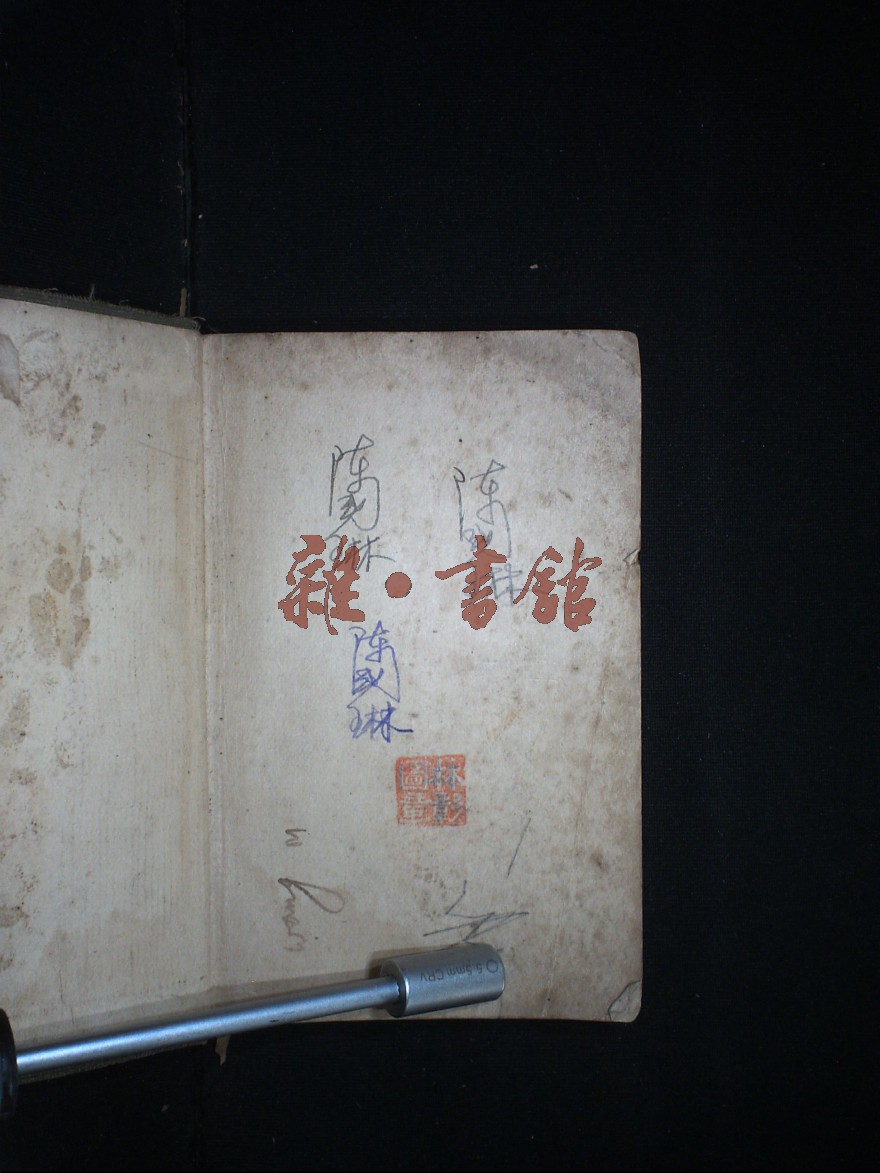 陳國琳
陳國琳
雜·書館
陳國琳
林彭
圖章
5.5mm CRV